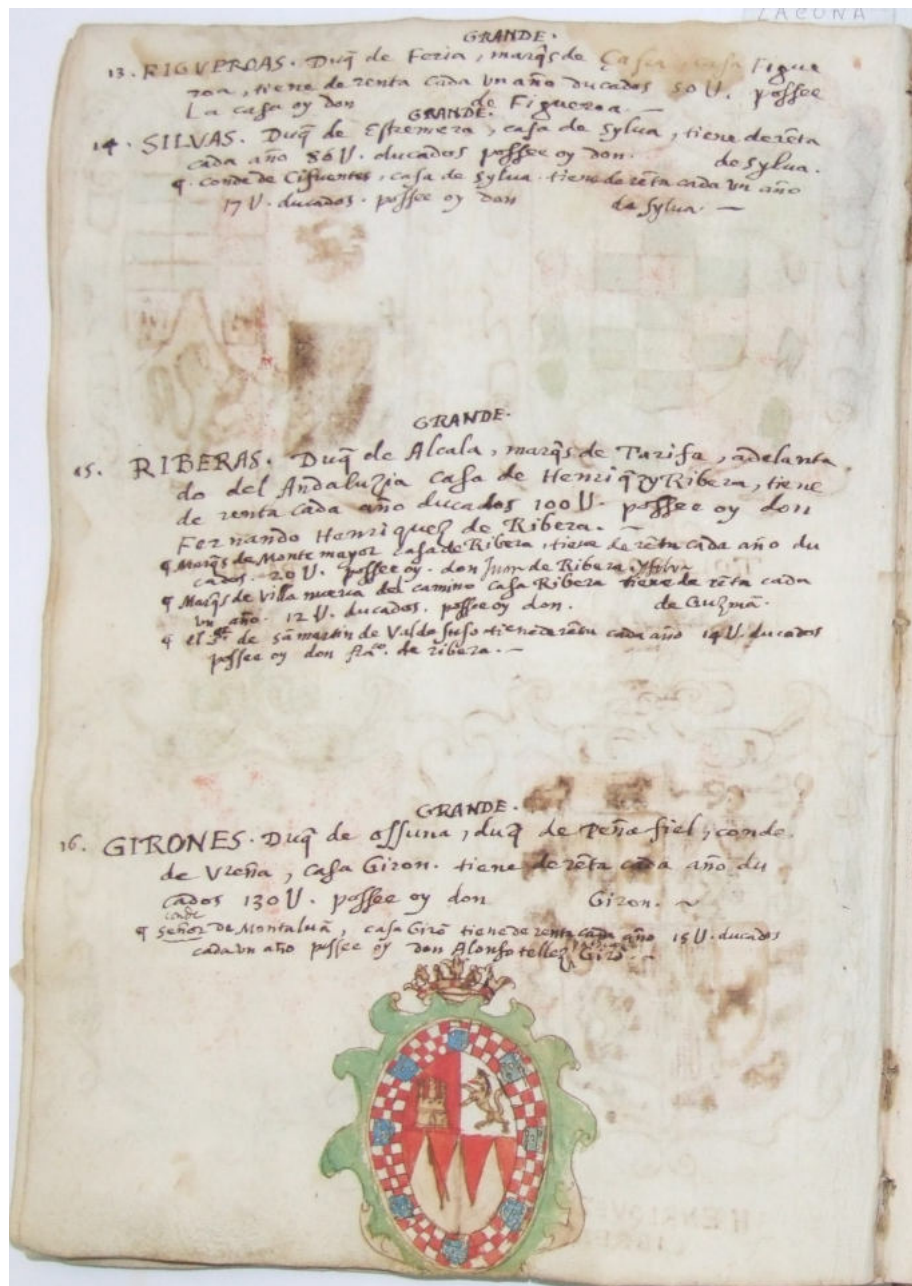 LACUNA
GRANDE.
13. FIGVEROAS. Duq̃ de Feria, marq̃s de Çafra, casa Figue
roa, tiene de renta cada vn año ducados 50 U. possee
La casa oy don de Figueroa. —
GRANDE.
14. SILVAS. Duq̃ de Estremera, casa de Sylua, tiene de rẽta
cada año 86 U. ducados possee oy don. de Sylua.
¶ conde de Cifuentes, casa de Sylua. tiene de rẽta cada vn año
17 U. ducados. possee oy don de Sylua. —
GRANDE.
15. RIBERAS. Duq̃ de Alcala, marq̃s de Tarifa, adelanta
do del Andaluzia casa de Henriq̃z y Ribera, tiene
de renta cada año ducados 100 U. possee oy don
Fernando Henriquez de Ribera. —
¶ Marq̃s de Montemayor casa de Ribera, tiene de rẽta cada año du
cados. 20 U. possee oy. don Juan de Ribera. y silva
¶ Marq̃s de Villa nueva del camino casa Ribera tiene de rẽta cada
vn año. 12 U. ducados. possee oy don. de Guzmã.
¶ el de sã martin de Valde suso tiene de rẽta cada año 14 U. ducados
possee oy don frã.co de ribera. —
GRANDE.
16. GIRONES. Duq̃ de Ossuna, duq̃ de Peñafiel, conde
de Vreña, casa Giron. tiene de rẽta cada año du
cados 130 U. possee oy don Giron. ~
conde
¶ Señor de Montaluã, casa Girõ tiene de renta cada año 15 U. ducados
cada vn año possee oy don Alonso tellez Girõ. —
HENRIQVE